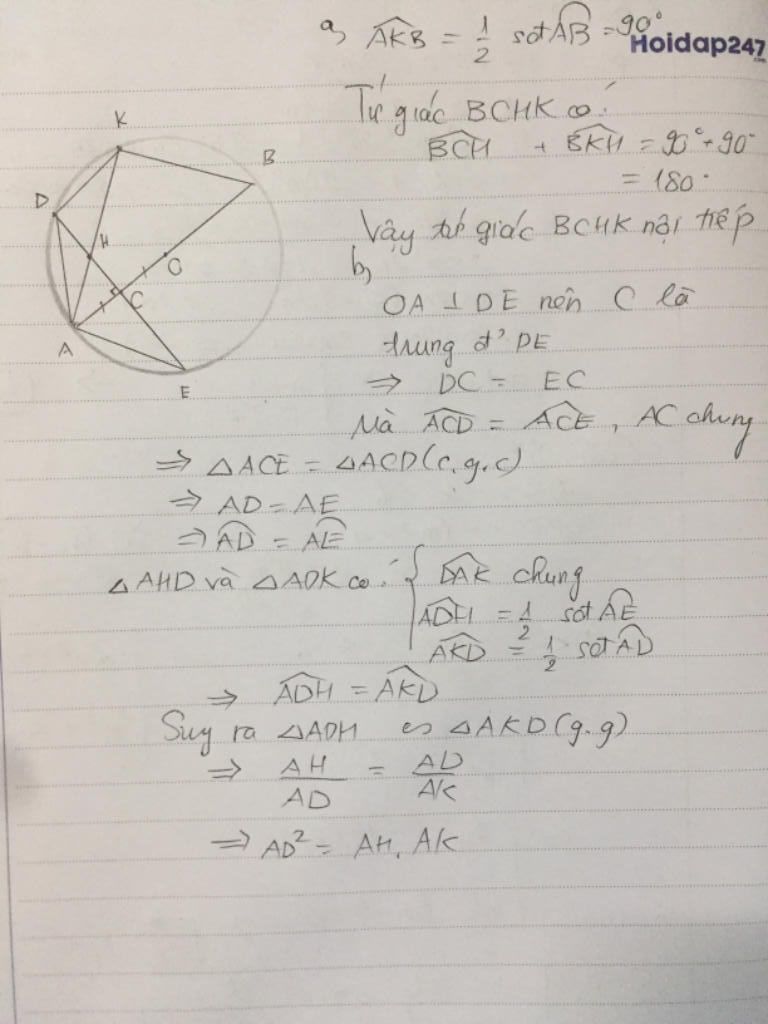 a) AKB = 1/2 sđt AB = 90°
Hoidap247.com
Tứ giác BCHK có:
BCH + BKH = 90° + 90°
= 180°
Vậy tứ giác BCHK nội tiếp
b)
OA ⊥ DE nên C là
trung đ' DE
⇒ DC = EC
Mà ACD = ACE, AC chung
⇒ △ACE = △ACD (c.g.c)
⇒ AD = AE
⇒ AD = AE
△AHD và △ADK có: { DAK chung
ADH = 1/2 sđt AE
AKD = 1/2 sđt AD
⇒ ADH = AKD
Suy ra △ADH ∽ △AKD (g.g)
⇒ AH/AD = AD/AK
⇒ AD² = AH. AK
K
B
D
H
O
C
A
E